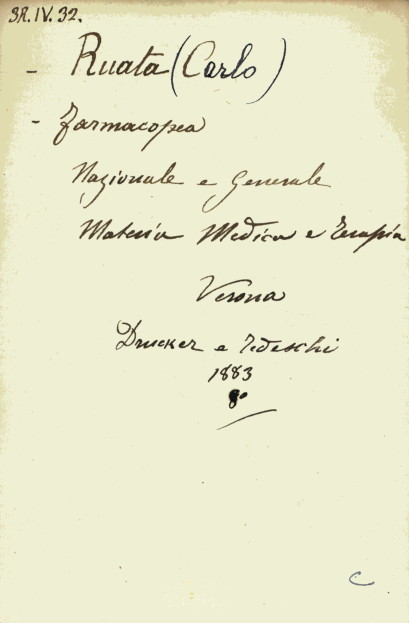 3R.IV.32.
- Ruata (Carlo)
- Farmacopea
Nazionale e Generale
Materia Medica e Terapia
Verona
Drucker e Tedeschi
1883
8°
C